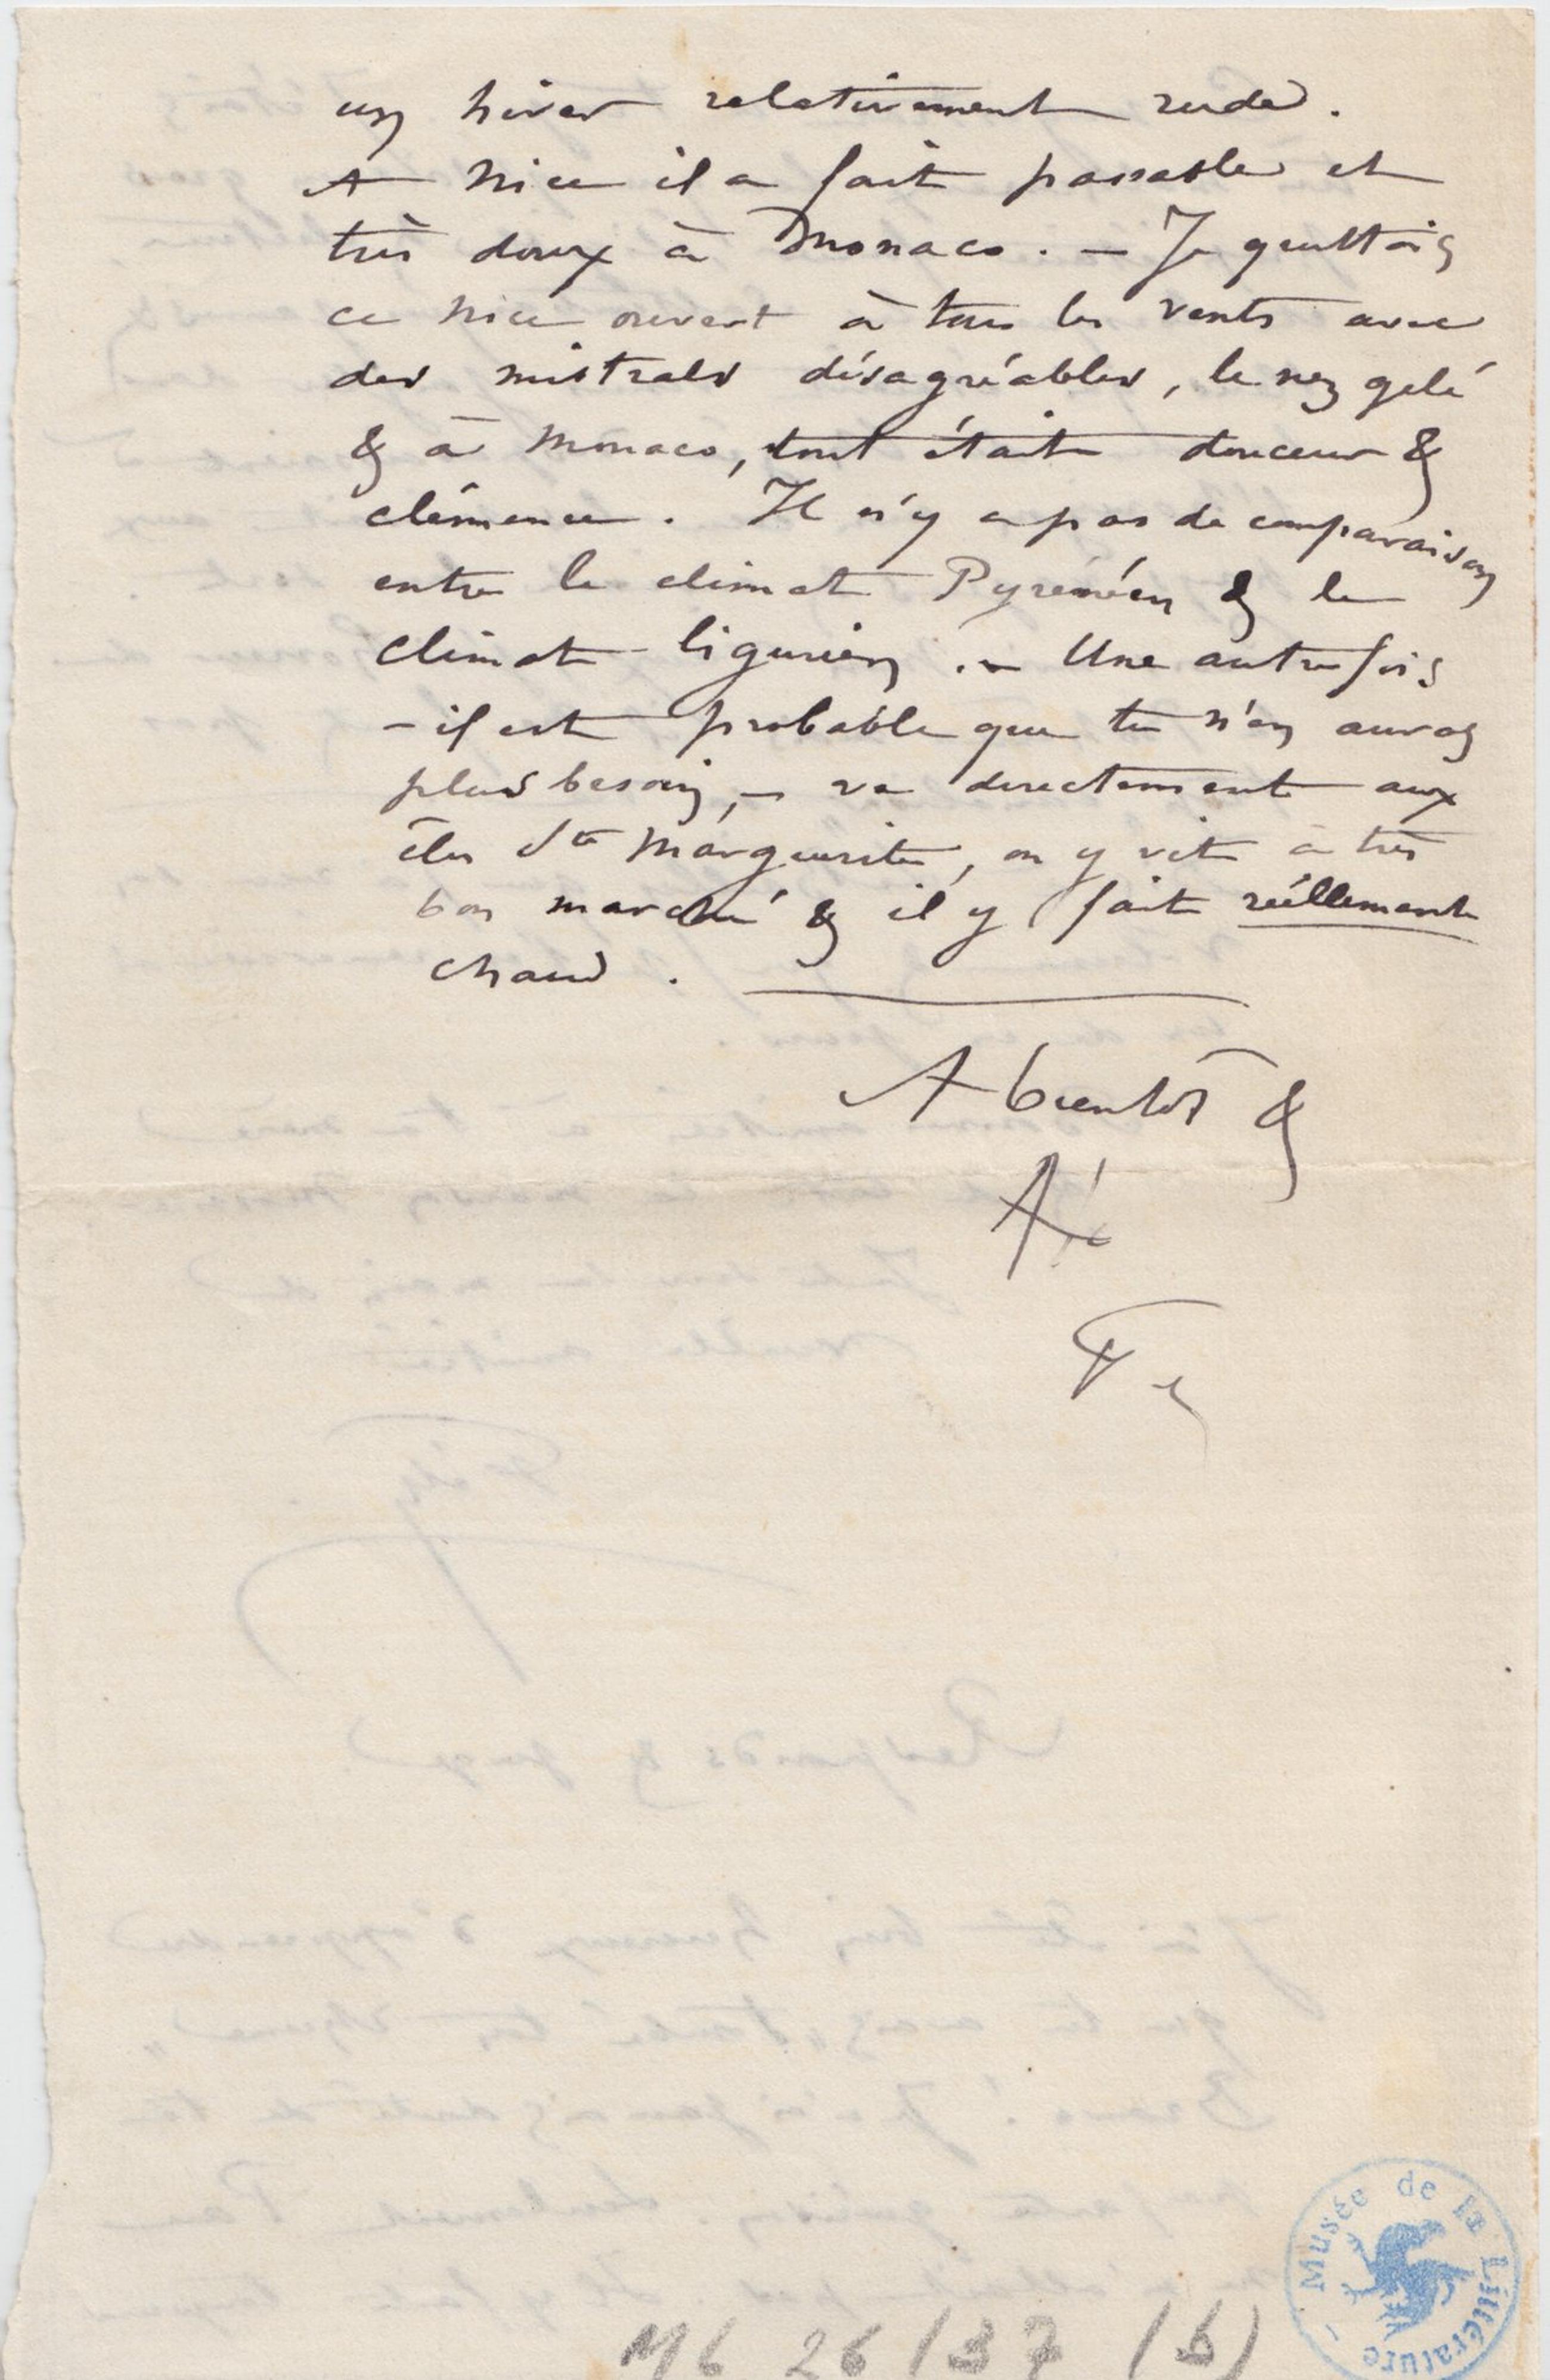 un hiver relativement rude.
A Nice il a fait passable et
très doux à Monaco. — Je quittais
ce Nice ouvert à tous les vents avec
des mistrals désagréables, le nez gelé
& à Monaco, tout était douceur &
clémence. Il n'y a pas de comparaison
entre le climat Pyrénéen & le
climat ligurien. — Une autre fois
— il est probable que tu n'en auras
plus besoin, — va directement aux
îles Ste Marguerite, on y vit à très
bon marché & il y fait réellement
chaud.
A bientôt &
Fé
Musée de la Littérature
ML 26/37 (b)